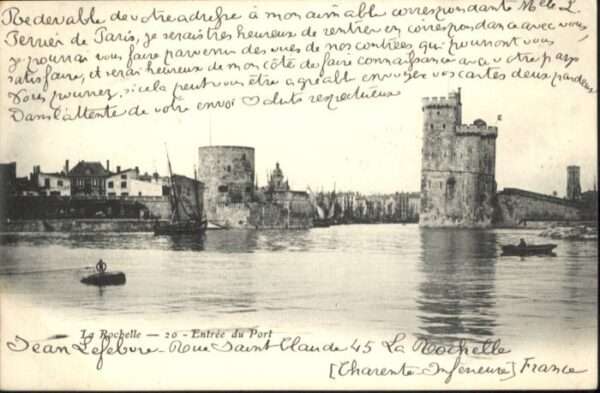 Redevable de votre adresse à mon aimable correspondante Melle L.
Perrier de Paris, je serais très heureux de rentrer en correspondance avec vous,
je pourrai vous faire parvenir des vues de nos contrées qui pourront vous
satisfaire, et serai heureux de mon côté de faire connaissance avec votre pays
Vous pourrez, si cela peut vous être agréable envoyer vos cartes deux par deux
Dans l'attente de votre envoi saluts respectueux
La Rochelle — 20 - Entrée du Port
Jean Lefebvre - Rue Saint Claude 45 La Rochelle
[Charente-Inférieure] France